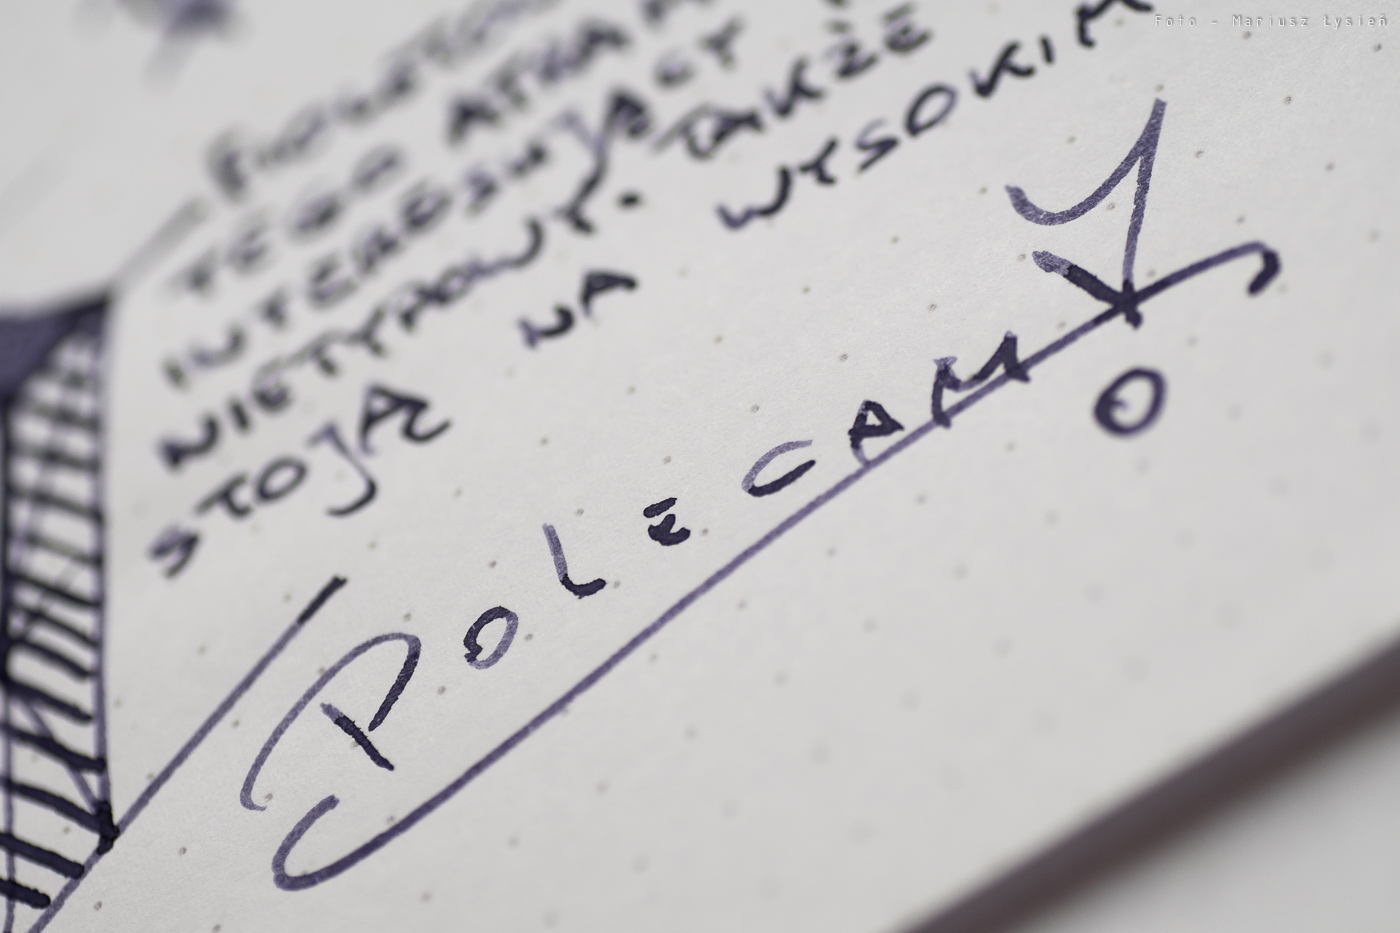 Foto - Mariusz Łysień
TEGO ATRAM
INTERESUJĄCY
NIETYPOWY. TAKŻE
STOJĄ NA WYSOKIM
POLECAM!